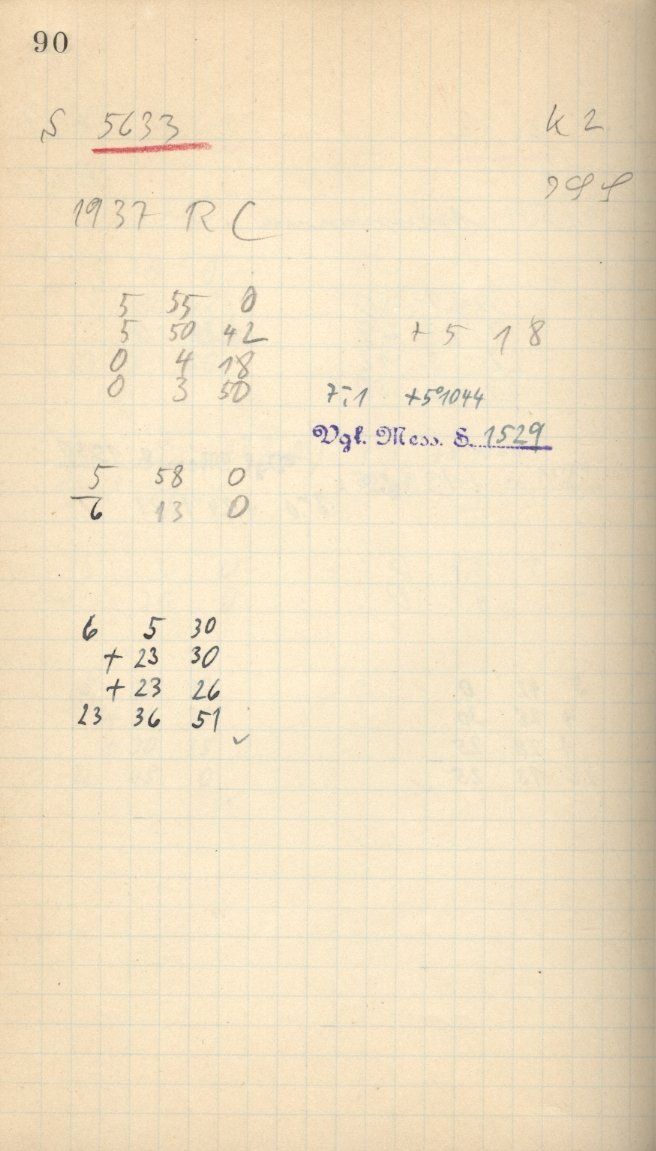 90
S 5633
K 2
1937 RC
5 55 0
5 50 42
+5 18
0 4 18
0 3 50
7;1 +5°1044
Vgl. Mess. S. 1529
5 58 0
6 13 0
6 5 30
+ 23 30
+ 23 26
23 36 51